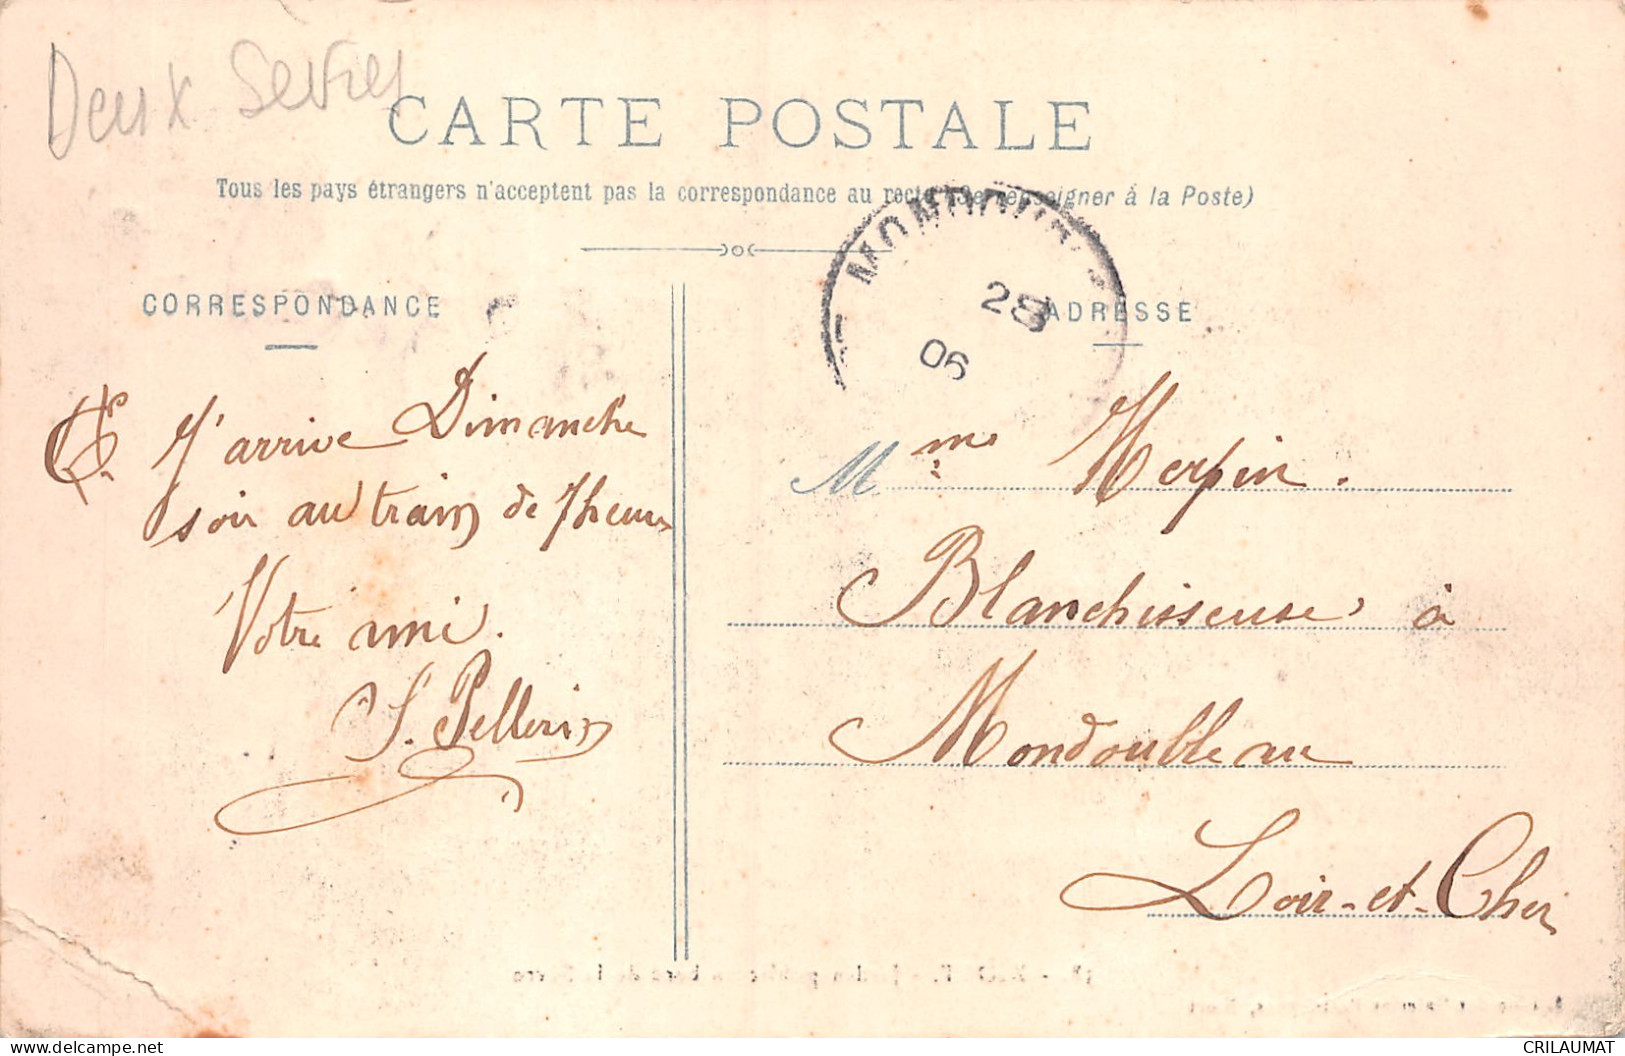 Deux Sevres
CARTE POSTALE
Tous les pays étrangers n'acceptent pas la correspondance au recto (Se renseigner à la Poste)
CORRESPONDANCE
ADRESSE
28
06
J'arrive Dimanche
soir au train de 7 heures
Votre ami.
S. Pellerin
Mme
Blanchisseuse à
Mondoubleau
Loir-et-Cher
CRILAUMAT